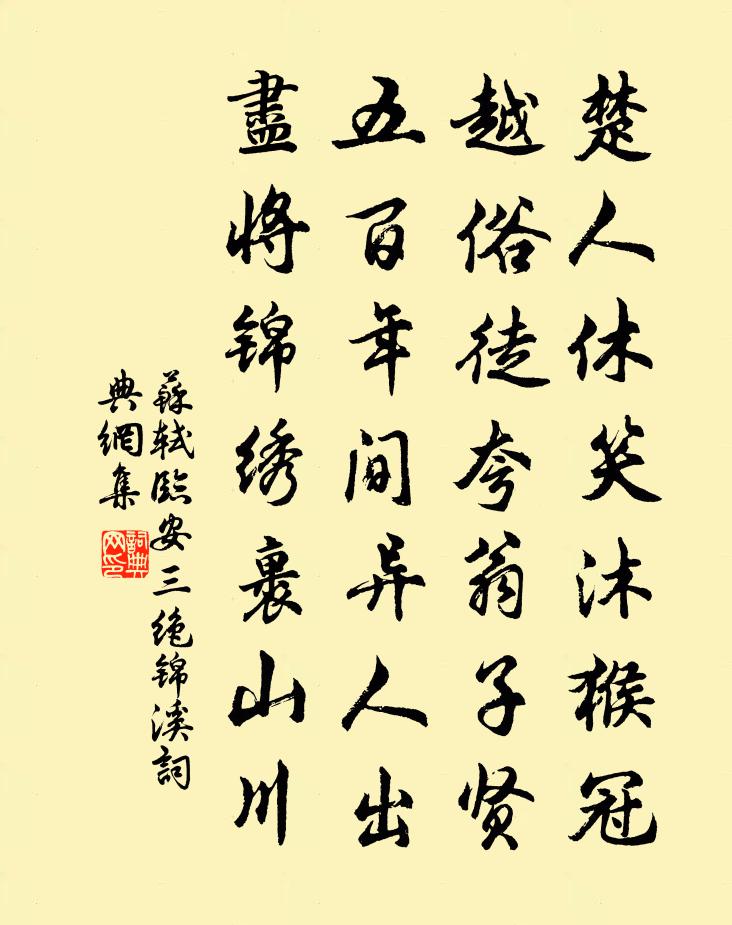 楚人休笑沐猴冠
越俗徒夸翁子贤
五百年间异人出
盡将锦绣裹山川
蘇轼臨安三绝锦溪詞
典網集
詞典
网印